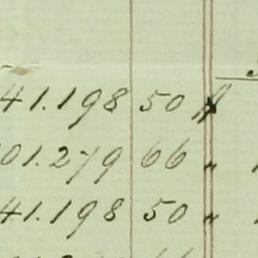 41.198 50 "
01.279 66 "
41.198 50 "